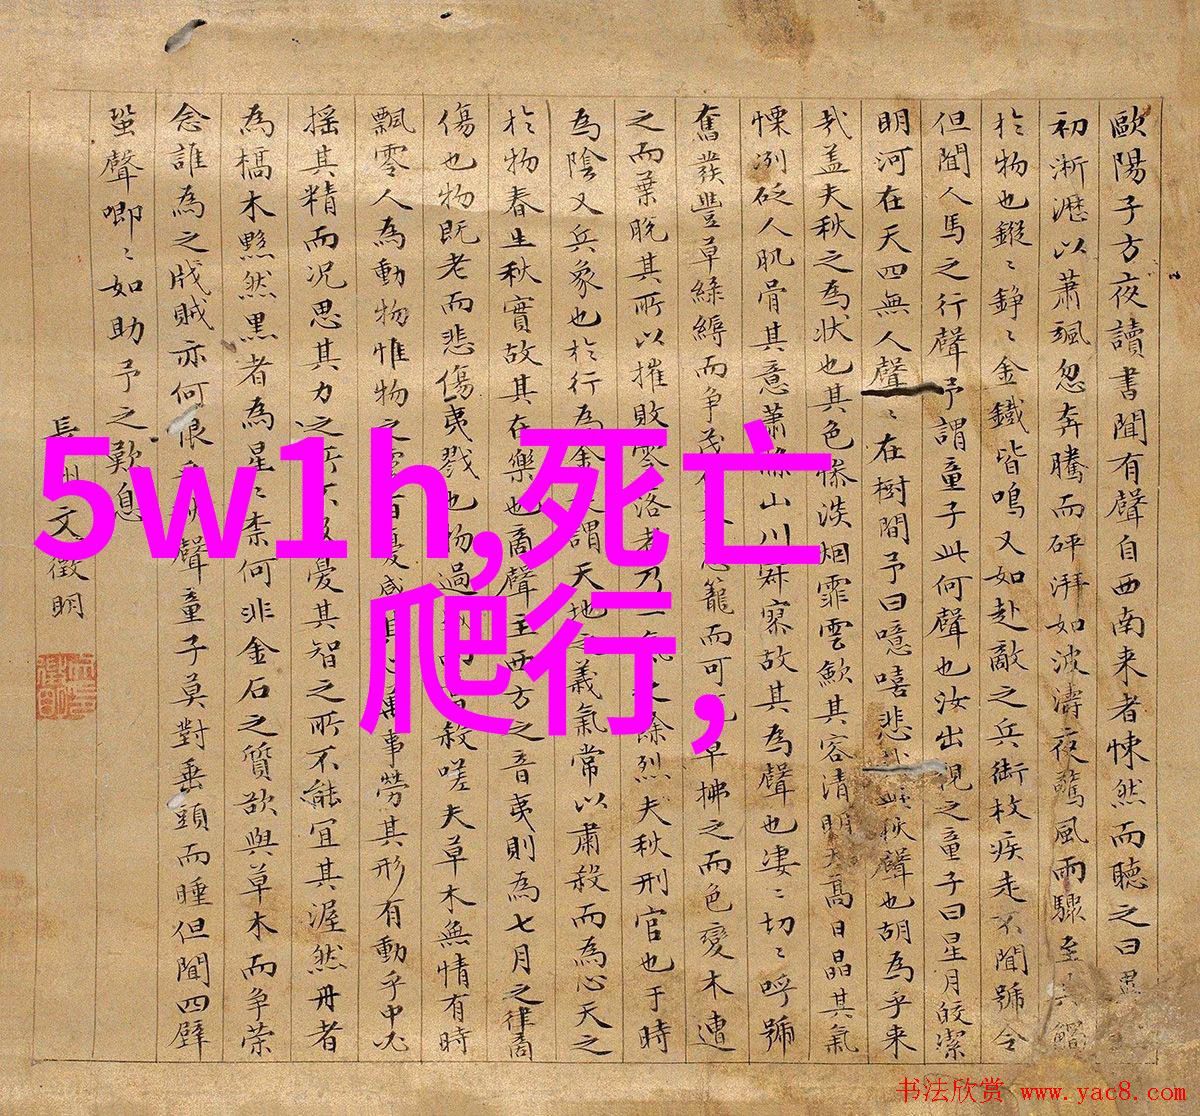 歐陽子方夜讀書聞有聲自西南来者悚然而聽之曰
初淅瀝以蕭颯忽奔騰而砰湃如波濤夜驚風雨驟至
於物也鏦〻錚〻金鐵皆鳴又如赴敵之兵銜枚疾走不聞號令
但聞人馬之行聲予謂童子此何聲也汝出視之童子曰星月皎潔
明河在天四無人聲〻在樹間予曰噫嘻悲哉此秋聲也胡為乎来
哉盖夫秋之為状也其色惨淡烟霏雲歛其容清明天高日晶其氣
慄冽砭人肌骨其意蕭條山川寂寥故其為聲也凄〻切〻呼號
奮發豐草緑縟而争茂籠而可草拂之而色變木遭
之而葉脱其所以摧敗零落者乃一餘烈夫秋刑官也于時
為陰又兵象也於行為金謂天地之義氣常以肅殺而為心天之
於物春生秋實故其在樂也商聲主西方之音夷則為七月之律商
傷也物既老而悲傷夷戮也物過殺嗟夫草木無情有時
飄零人為動物惟物之百憂感萬事勞其形有動乎中必
摇其精而况思其力之所不及憂其智之所不能宜其渥然丹者
為槁木黟然黒者為星〻柰何非金石之質欲與草木而争荣
念誰為之戕賊亦何恨聲童子莫對垂頭而睡但聞四壁
蛩聲唧〻如助予之歎息
長洲文徵明
5w1h,死亡
爬行,
书法欣赏 www.yac8.com